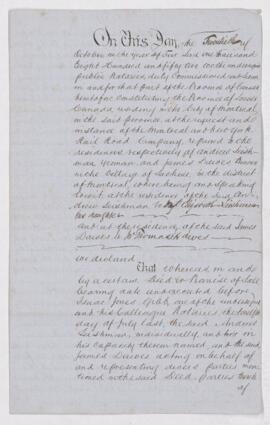 On this Day, the Twelfth of
October in the year of Our Lord One thousand
Eight Hundred and fifty two We the undersigned
public Notaries, duly Commissioned and sworn
in and for that part of the Province of Canada
heretofore constituting the Province of Lower
Canada, residing in the City of Montreal,
in the said province, at the request and
instance of the Montreal and New York
Rail Road Company, repaired to the
residences respectively of Andrew
yeoman, and James Dawes Brewer
in the Parish of Lachine, in the district
of Montreal, where being and speaking
to wit, at the residence of the said An
drew to
his daughter
and at the residence of the said James
Dawes to Mr Thomas Dawes
We declared
That whereas in and
by a certain Deed or Promise of Sale
bearing date and executed before
Isaac Jones Gibb, one of the undersigned
and his Colleague Notaries, the
day of July last, the said Andrew
individually, and also in
his capacity therein named, and the said
James Dawes acting on behalf of
and representing divers parties men
tioned in the said Deed parties
of